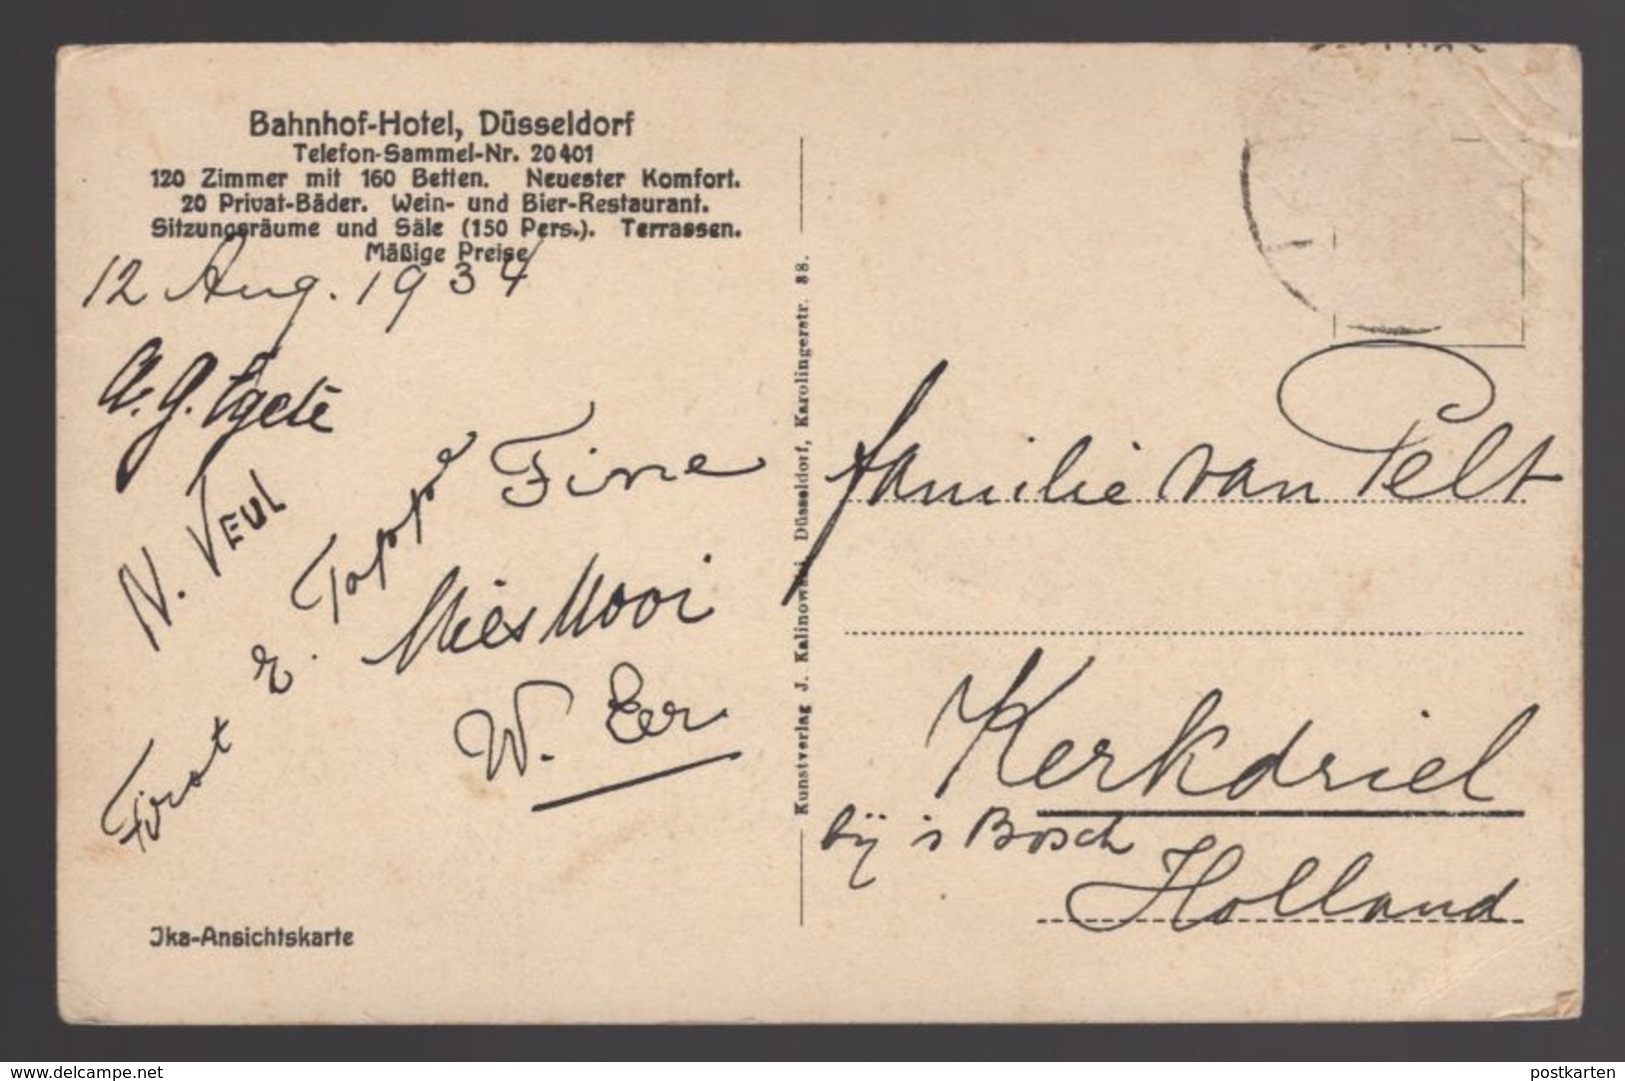 Bahnhof-Hotel, Düsseldorf
Telefon-Sammel-Nr. 20401
120 Zimmer mit 160 Betten. Neuester Komfort.
20 Privat-Bäder. Wein- und Bier-Restaurant.
Sitzungsräume und Säle (150 Pers.). Terrassen.
Mäßige Preise
12 Aug. 1934
N. VEUL
Fine
Mies Mooi
W. Eer
Jka-Ansichtskarte
Kunstverlag J. Kalinowski, Düsseldorf, Karolingerstr. 88.
familie van Pelt
Kerkdriel
bij 's Bosch
Holland
www.delcampe.net
postkarten